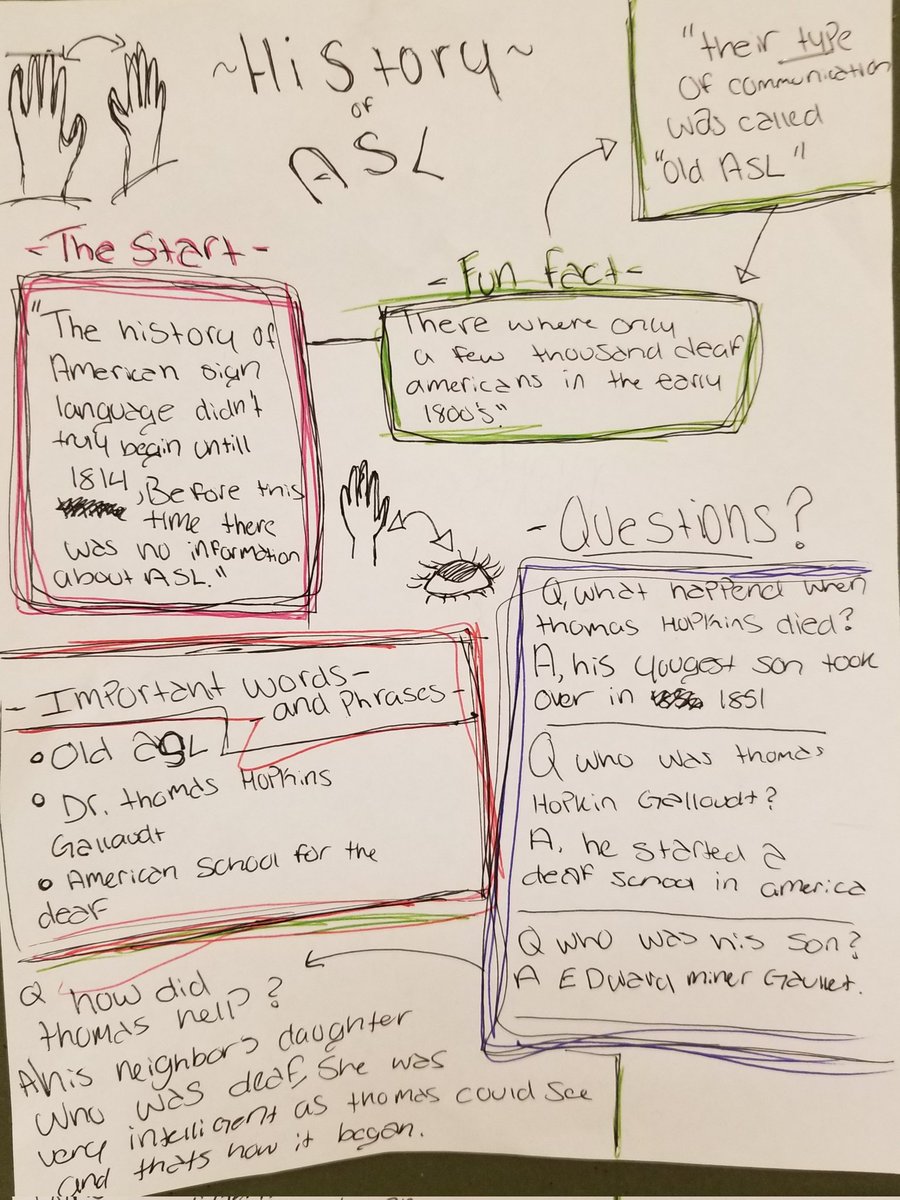 ~History~
of
ASL
"their type
of communication
was called
"Old ASL"
- The Start -
"The history of
American sign
language didn't
truly begin untill
1814, Before this
time there
was no information
about ASL."
- Fun fact -
There where only
a few thousand deaf
americans in the early
1800's."
- Questions?
Q, what happend when
thomas HOPKins died?
A, his yougest son took
over in 1851
Q who was thomas
HOPKin Gallaudt?
A, he started a
deaf school in america
Q who was his son?
A EDward miner Gaullet.
- Important words -
and Phrases -
• Old ASL
• Dr. thomas HOPKins
Gallaudt
• American School for the
deaf
Q how did
thomas help?
A his neighbors daughter
who was deaf, She was
very intelligent as thomas could see
and thats how it began.